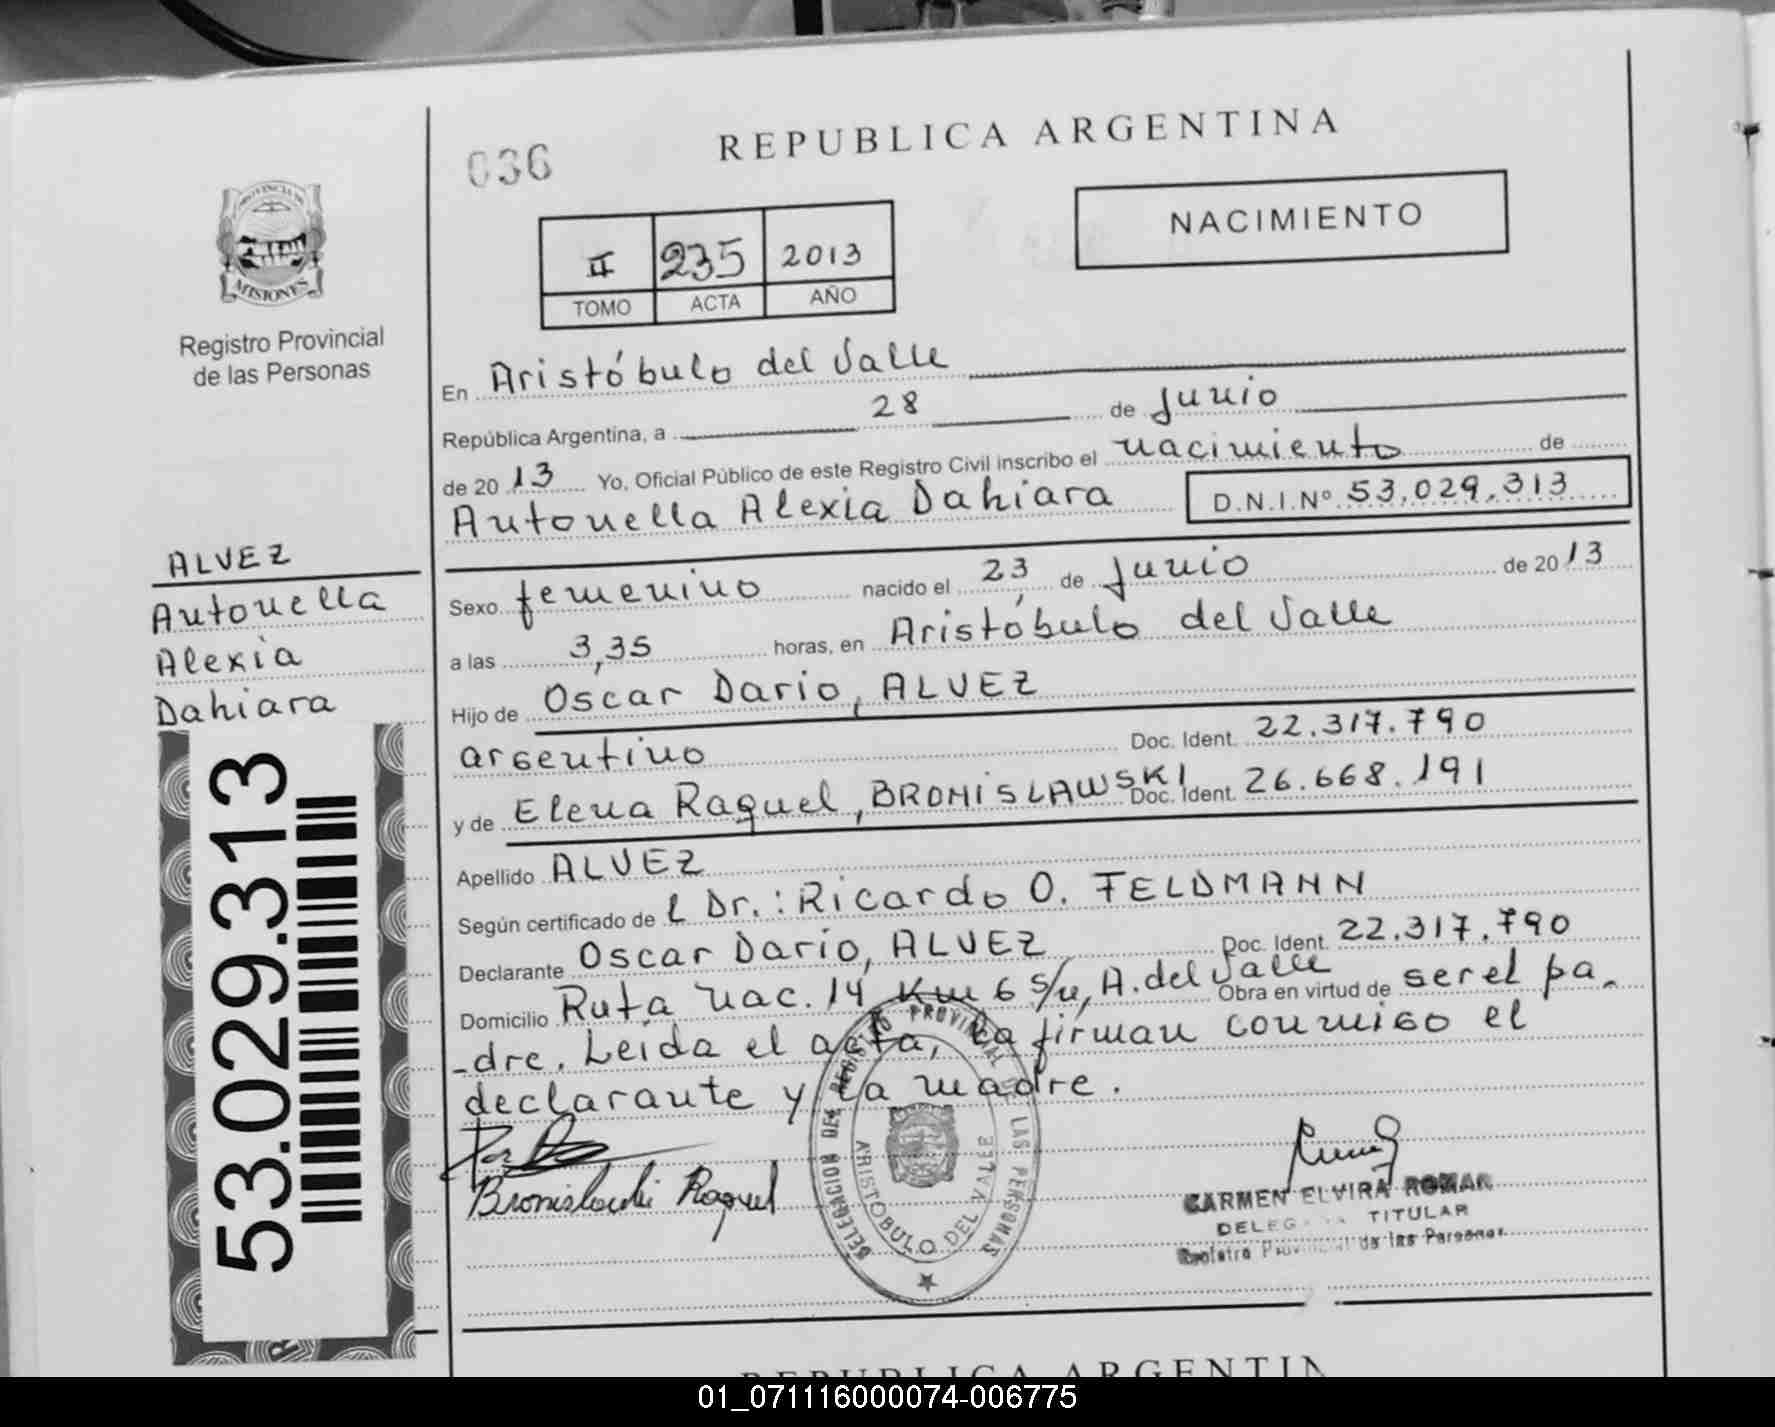 036
REPUBLICA ARGENTINA
NACIMIENTO
II 235 2013
TOMO ACTA AÑO
PROVINCIA DE
MISIONES
Registro Provincial
de las Personas
En Aristóbulo del Valle
República Argentina, a 28 de Junio
de 2013 Yo, Oficial Público de este Registro Civil inscribo el nacimiento de
Antonella Alexia Dahiara D.N.I.Nº 53.029.313
Sexo femenino nacido el 23 de Junio de 2013
a las 3,35 horas, en Aristóbulo del Valle
Hijo de Oscar Dario, ALVEZ
argentino Doc. Ident. 22.317.790
y de Elena Raquel, BRONISLAWSKI Doc. Ident. 26.668.191
Apellido ALVEZ
Según certificado de l Dr.: Ricardo O. FELDMANN
Declarante Oscar Dario, ALVEZ Doc. Ident. 22.317.790
Domicilio Ruta nac. 14 Km 6 s/n, A. del Valle Obra en virtud de ser el pa-
-dre. Leída el acta, la firman conmigo el
declarante y la madre.
ALVEZ
Antonella
Alexia
Dahiara
53.029.313
Bronislawski Raquel
DELEGACION DEL REGISTRO PROVINCIAL DE LAS PERSONAS
ARISTOBULO DEL VALLE
CARMEN ELVIRA ROMAN
TITULAR
Registro Provincial de las Personas
REPUBLICA ARGENTIN
01_071116000074-006775